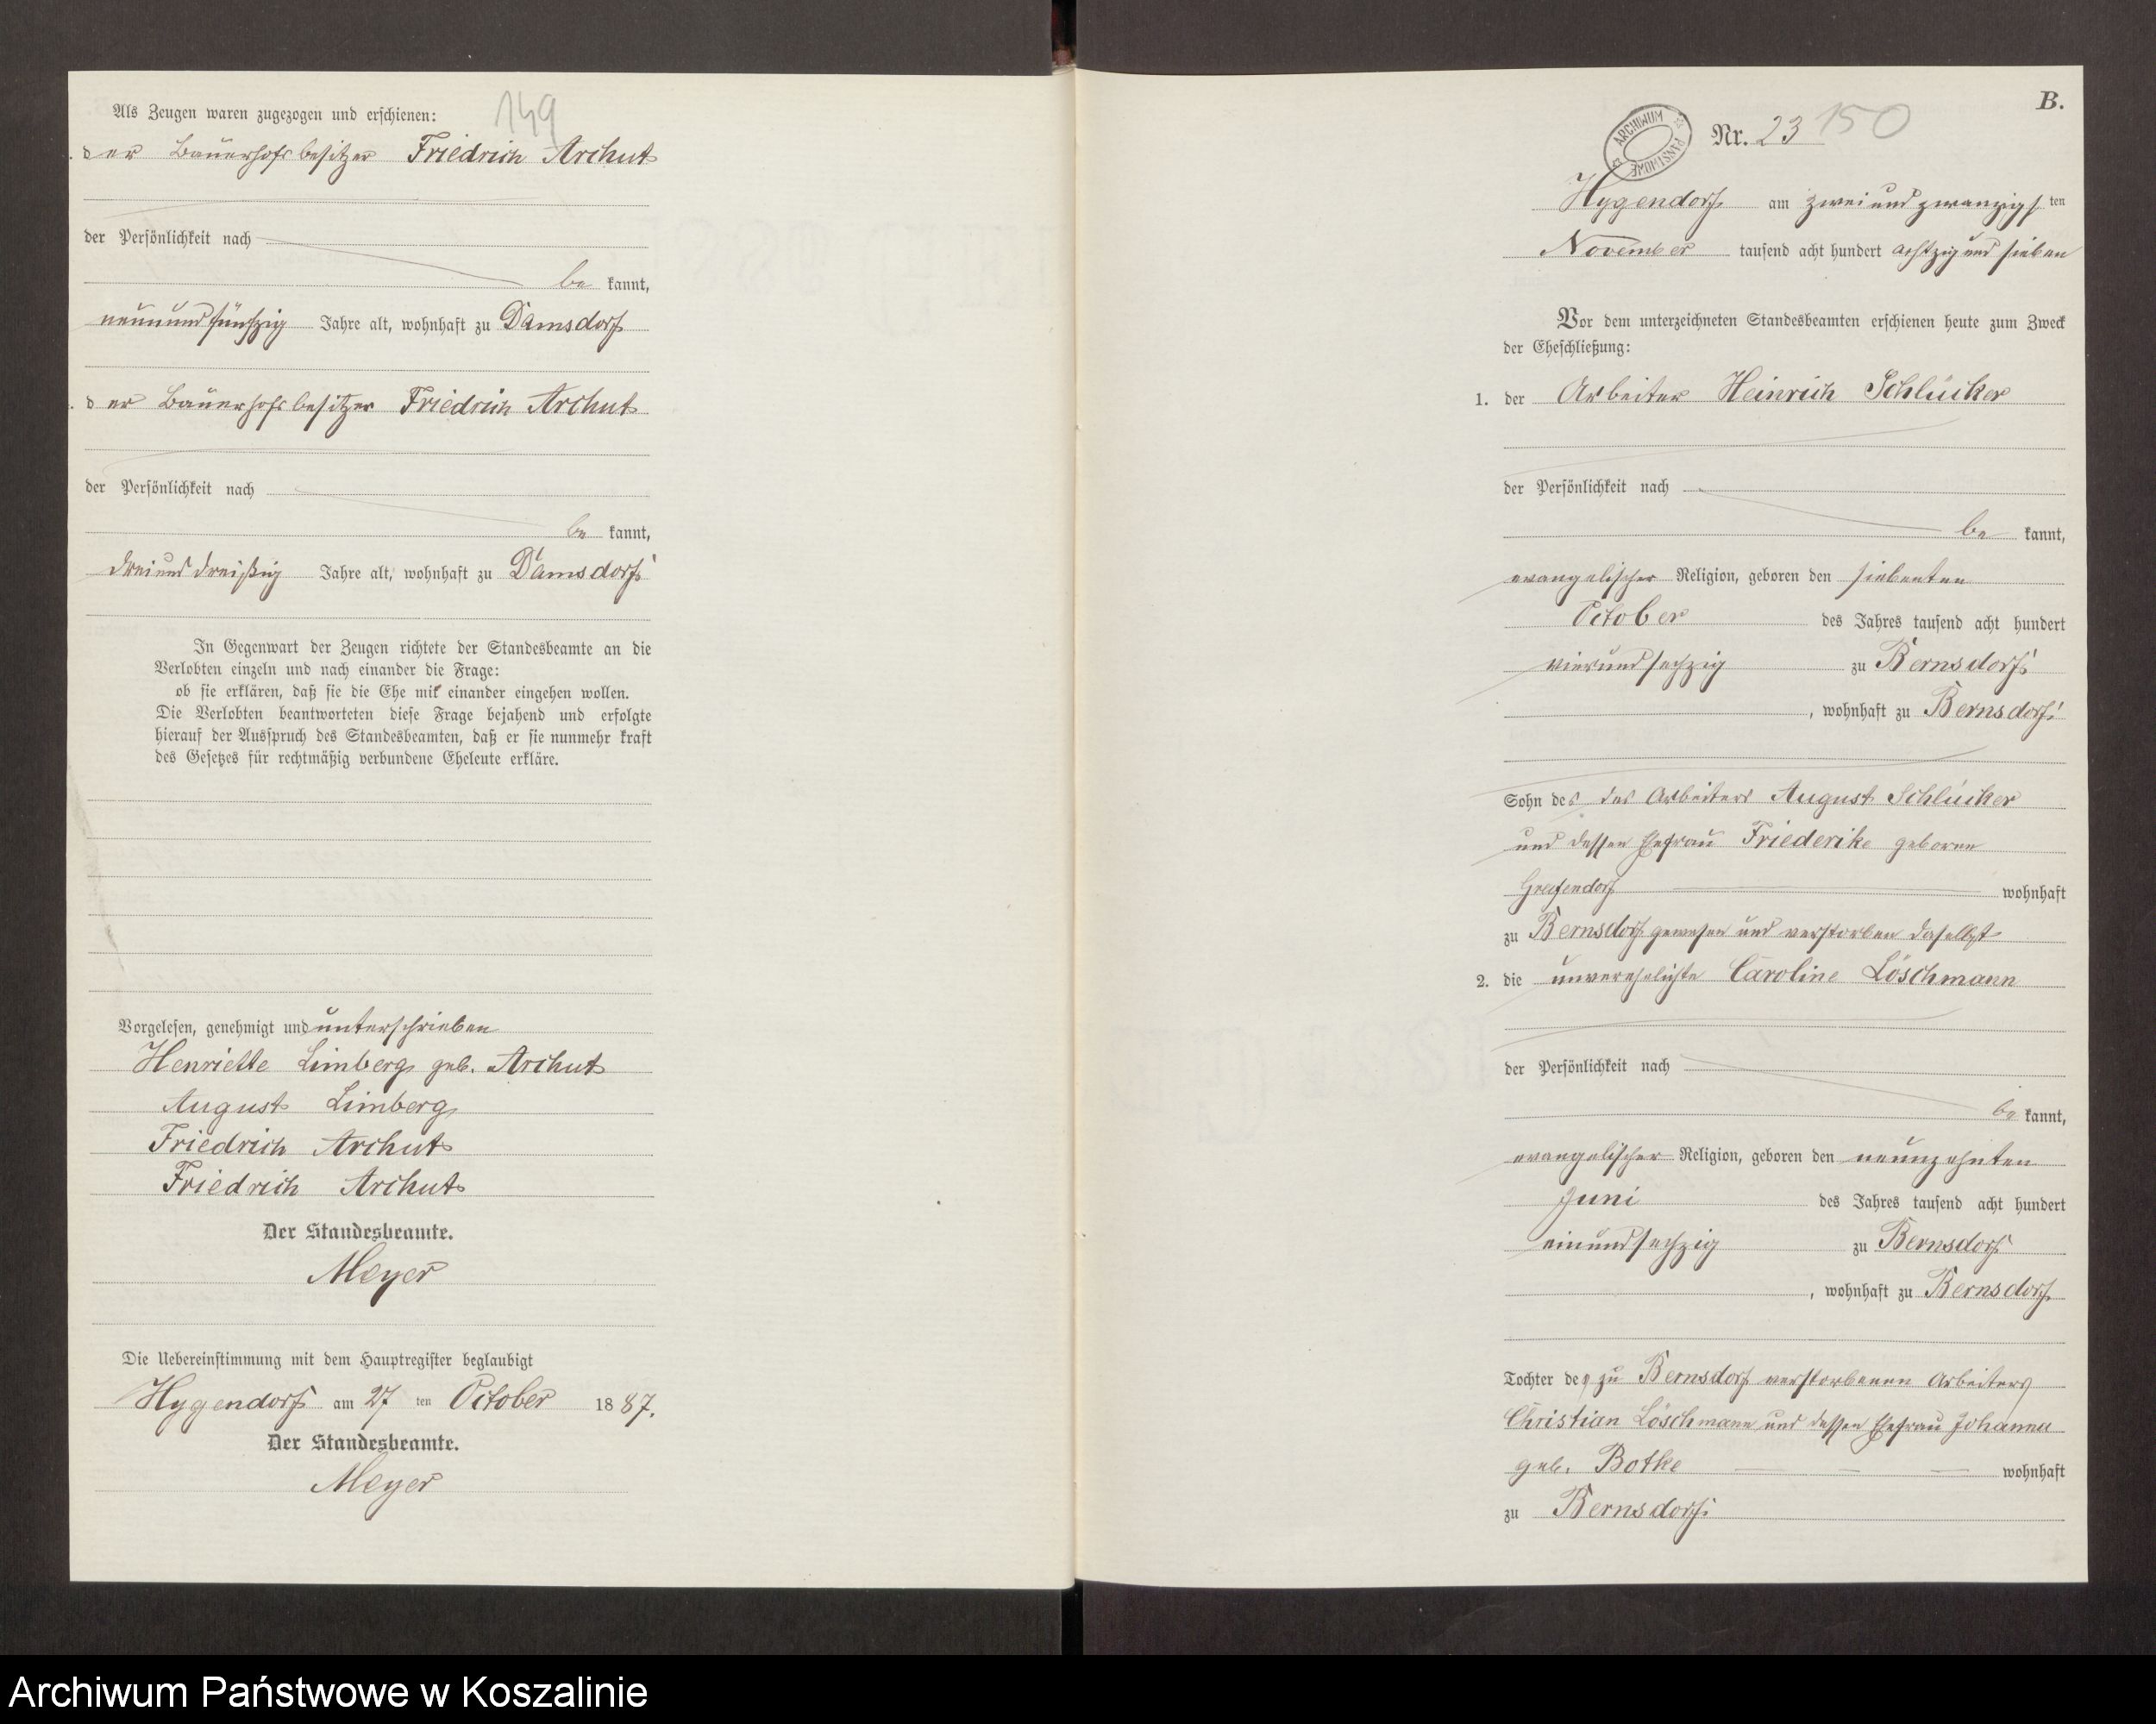 149
Als Zeugen waren zugezogen und erschienen:
der Bauerhofsbesitzer Friedrich Archut
der Persönlichkeit nach
be kannt,
neunundfünfzig Jahre alt, wohnhaft zu Damsdorf
der Bauerhofsbesitzer Friedrich Archut
der Persönlichkeit nach
be kannt,
dreiunddreißig Jahre alt, wohnhaft zu Damsdorf
In Gegenwart der Zeugen richtete der Standesbeamte an die
Verlobten einzeln und nach einander die Frage:
ob sie erklären, daß sie die Ehe mit einander eingehen wollen.
Die Verlobten beantworteten diese Frage bejahend und erfolgte
hierauf der Ausspruch des Standesbeamten, daß er sie nunmehr kraft
des Gesetzes für rechtmäßig verbundene Eheleute erkläre.
Vorgelesen, genehmigt und unterschrieben
Henriette Limberg geb. Archut
August Limberg
Friedrich Archut
Friedrich Archut
Der Standesbeamte.
Meyer
Die Uebereinstimmung mit dem Hauptregister beglaubigt
Hygendorf am 27 ten October 1887.
Der Standesbeamte.
Meyer
B.
ARCHIWUM PAŃSTWOWE
Nr. 23 150
Hygendorf am zweiundzwanzigsten
November tausend acht hundert achtzig und sieben
Vor dem unterzeichneten Standesbeamten erschienen heute zum Zweck
der Eheschließung:
1. der Arbeiter Heinrich Schlücker
der Persönlichkeit nach
be kannt,
evangelischer Religion, geboren den siebenten
October des Jahres tausend acht hundert
vierundsechzig zu Bernsdorf
, wohnhaft zu Bernsdorf
Sohn des des Arbeiters August Schlücker
und dessen Ehefrau Friederike geborne
Greifendorf wohnhaft
zu Bernsdorf gewesen und verstorben daselbst
2. die unverehelichte Caroline Löschmann
der Persönlichkeit nach
be kannt,
evangelischer Religion, geboren den neunzehnten
Juni des Jahres tausend acht hundert
einundsechzig zu Bernsdorf
, wohnhaft zu Bernsdorf
Tochter des zu Bernsdorf verstorbenen Arbeiters
Christian Löschmann und dessen Ehefrau Johanna
geb. Botke wohnhaft
zu Bernsdorf
Archiwum Państwowe w Koszalinie